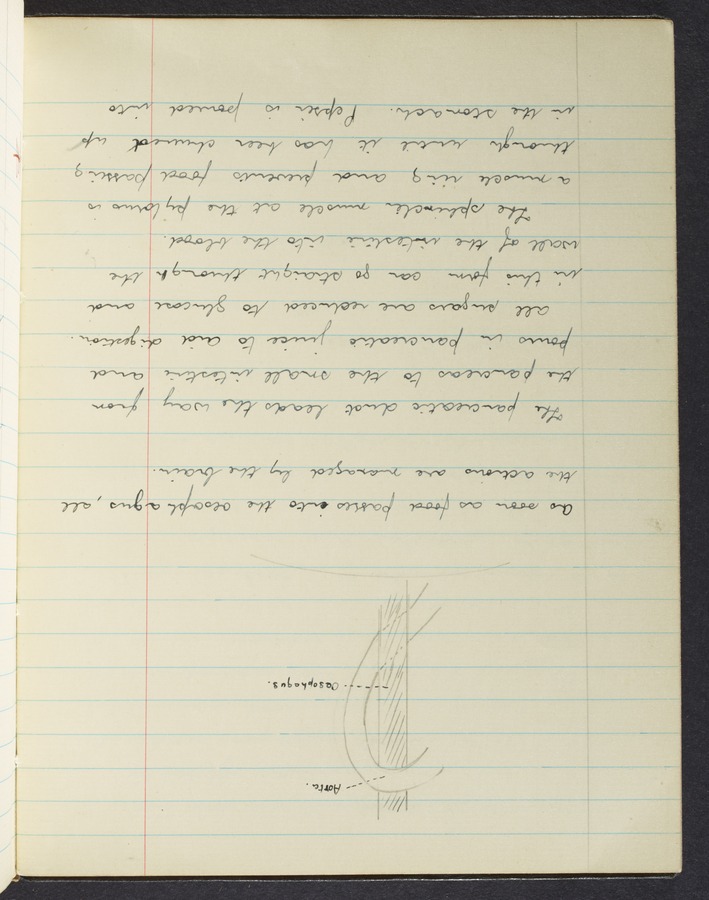 Aorta.
Oesophagus.
As soon as food passes into the oesophagus, all
the actions are managed by the brain.
The pancreatic duct leads the way from
the pancreas to the small intestine and
pours in pancreatic juice to aid digestion.
all sugars are reduced to glucose and
in this form can go straight through the
wall of the intestine into the blood.
The sphincter muscle at the pylorus is
a muscle ring and prevents food passing
through until it has been churned up
in the stomach. Pepsin is poured into